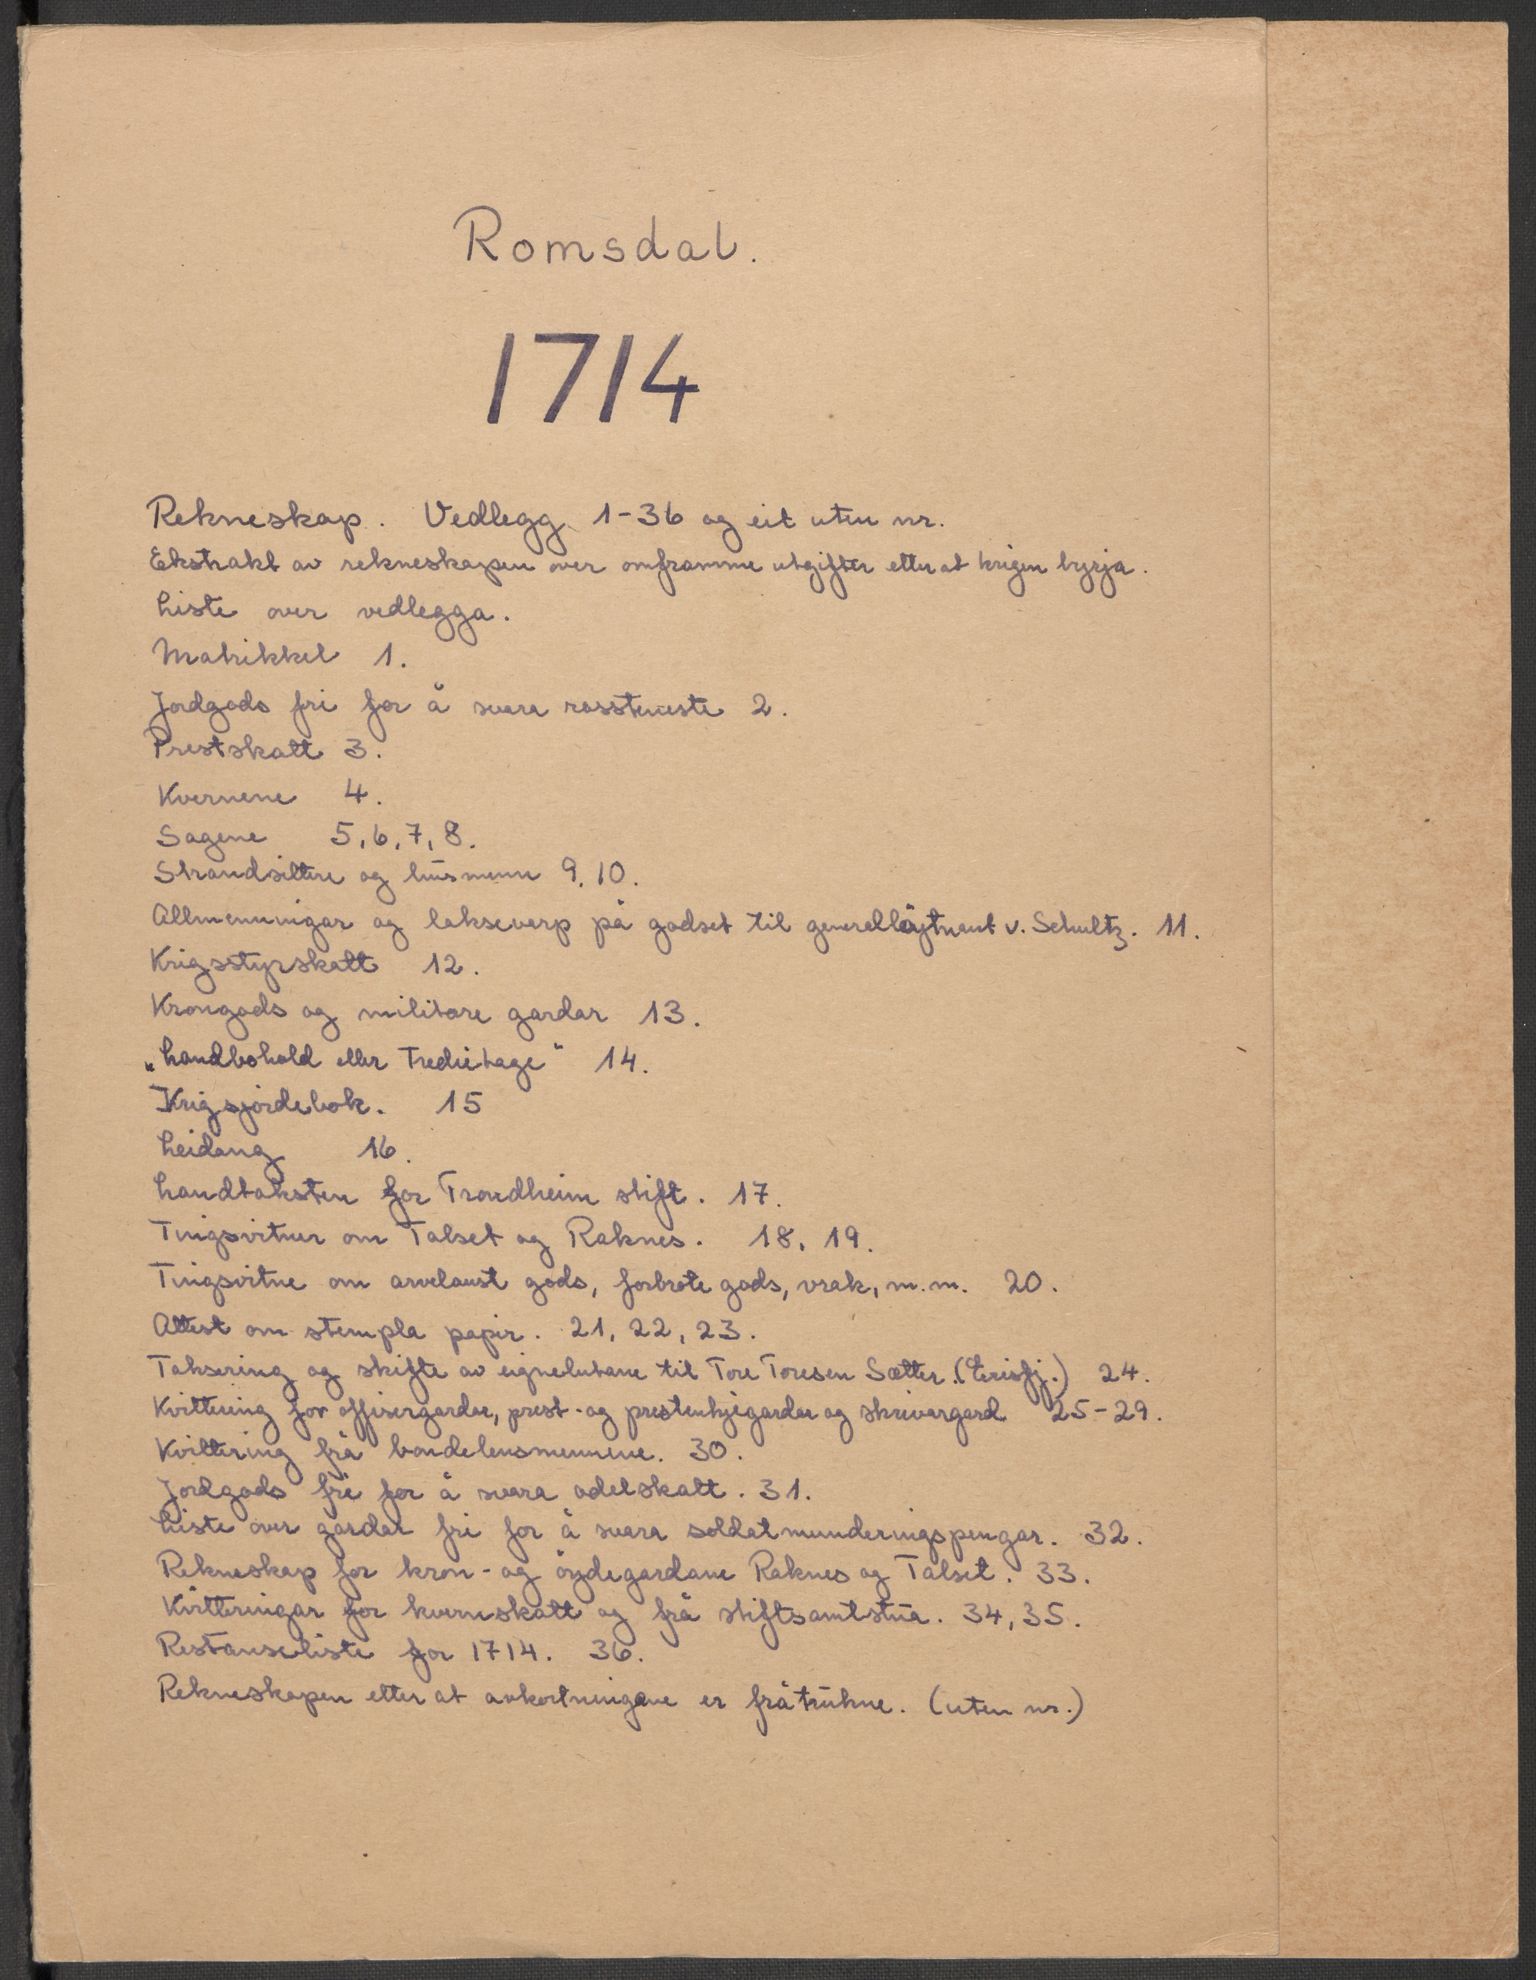 Romsdal.
1714
Rekneskap. Vedlegg 1-36 og eit uten nr.
Ekstrakt av rekneskapen over omframme utgifter etter at krigen byrja.
Liste over vedlegga.
Matrikkel 1.
Jordgods fri for å svara rossteneste 2.
Prestskatt 3.
Kvernene 4.
Sagene 5, 6, 7, 8.
Strandsittere og husmenn 9, 10.
Allmenningar og laksevarp på godset til generalløjtnant v. Schultz. 11.
Krigsstyrskatt 12.
Krongods og militære gardar 13.
„Landbohold eller Tredietage" 14.
Krigsjordebok. 15
Leidang 16.
Landtaksten for Trondheim stift. 17.
Tingsvitner om Talset og Raknes. 18, 19.
Tingsvitne om arvelaust gods, forbrote gods, vrak, m.m. 20.
Attest om stempla papir. 21, 22, 23.
Taksering og skifte av eignelutane til Tore Toresen Sætter. (Eirisfj.) 24.
Kvittering for offisergardar, prest- og prestenkjegardar og skrivargard 25-29.
Kvittering frå bondelensmennene. 30.
Jordgods fri for å svara odelskatt. 31.
Liste over gardar fri for å svara soldatmunderingspengar. 32.
Rekneskap for kron- og öydegardane Raknes og Talset. 33.
Kvitteringar for kvernskatt og frå stiftsamtstua. 34, 35.
Restanseliste for 1714. 36.
Rekneskapen etter at avkortningane er fråtrukne. (uten nr.)